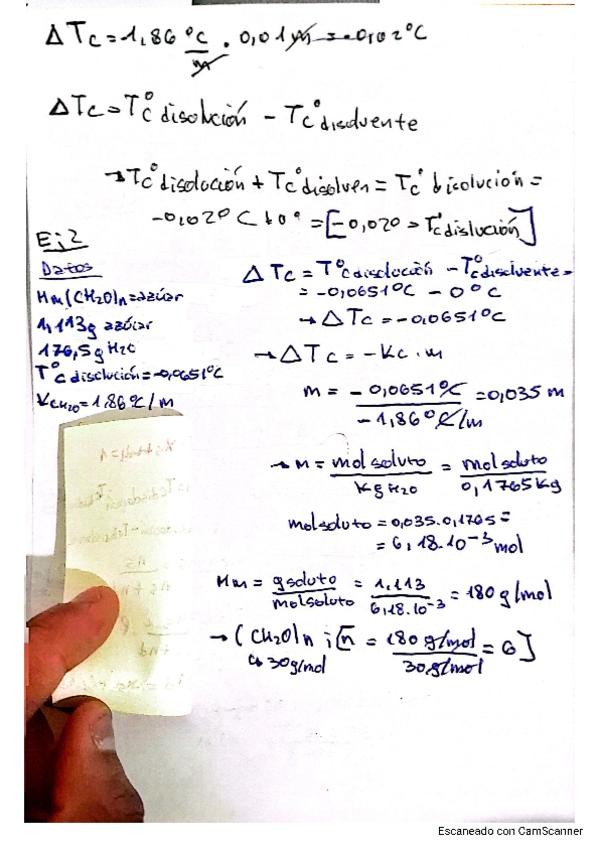 ΔTc = 1,86 ºC/m · 0,01 m = -0,02ºC
ΔTc = Tcº disolución - Tcº disolvente
→ Tcº disolución + Tcº disolven = Tcº disolución =
-0,020ºC + 0º = [-0,020 = Tcº dislución]
Ej 2
Datos
Mm (CH2O)n = azúcar
1,113g azúcar
176,5g H2O
Tcº disolución = -0,0651ºC
KcH2O = 1,86ºC/m
ΔTc = Tcº disolución - Tcº disolvente =
= -0,0651ºC - 0ºC
→ ΔTc = -0,0651ºC
→ ΔTc = -Kc · m
m = -0,0651ºC / -1,86ºC/m = 0,035 m
→ m = mol soluto / Kg H2O = mol soluto / 0,1765 Kg
mol soluto = 0,035 · 0,1765 =
= 6,18·10⁻³ mol
Mm = g soluto / mol soluto = 1,113 / 6,18·10⁻³ = 180 g/mol
→ (CH2O)n ; [n = 180 g/mol / 30 g/mol = 6]
↳ 30g/mol
Escaneado con CamScanner